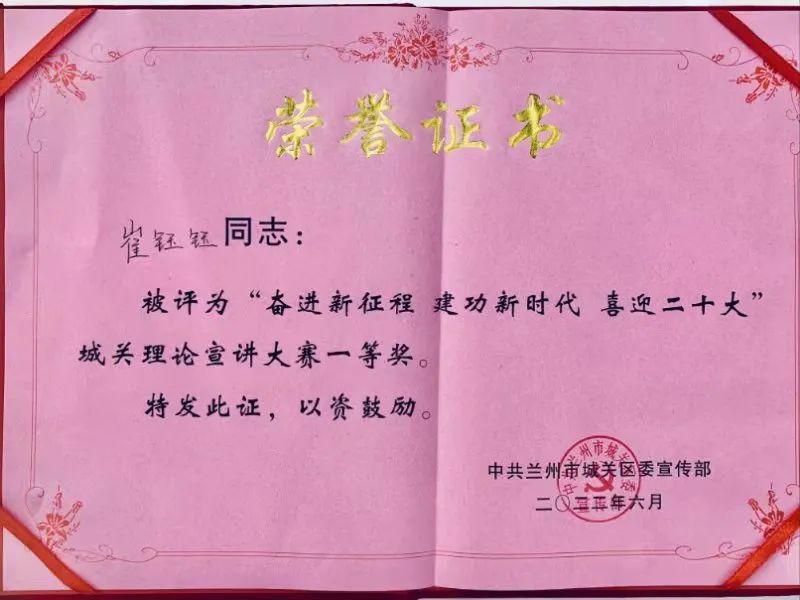 荣誉证书
崔钰钰同志：
被评为“奋进新征程 建功新时代 喜迎二十大”
城关理论宣讲大赛一等奖。
特发此证，以资鼓励。
中共兰州市城关区委宣传部
二〇二二年六月